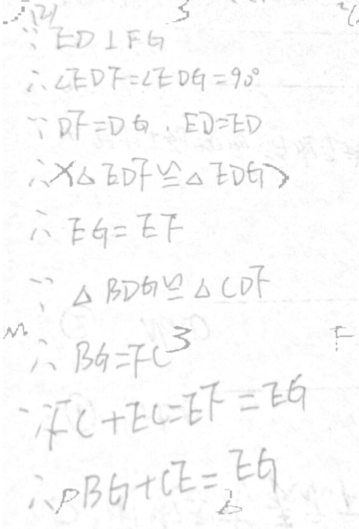 (2)
∵ ED⊥FG
∴ ∠EDF=∠EDG=90°
∵ DF=DG, ED=ED
∴ △EDF≌△EDG
∴ EG=EF
∵ △BDG≌△CDF
∴ BG=FC
∵ FC+EC=EF=EG
∴ BG+CE=EG